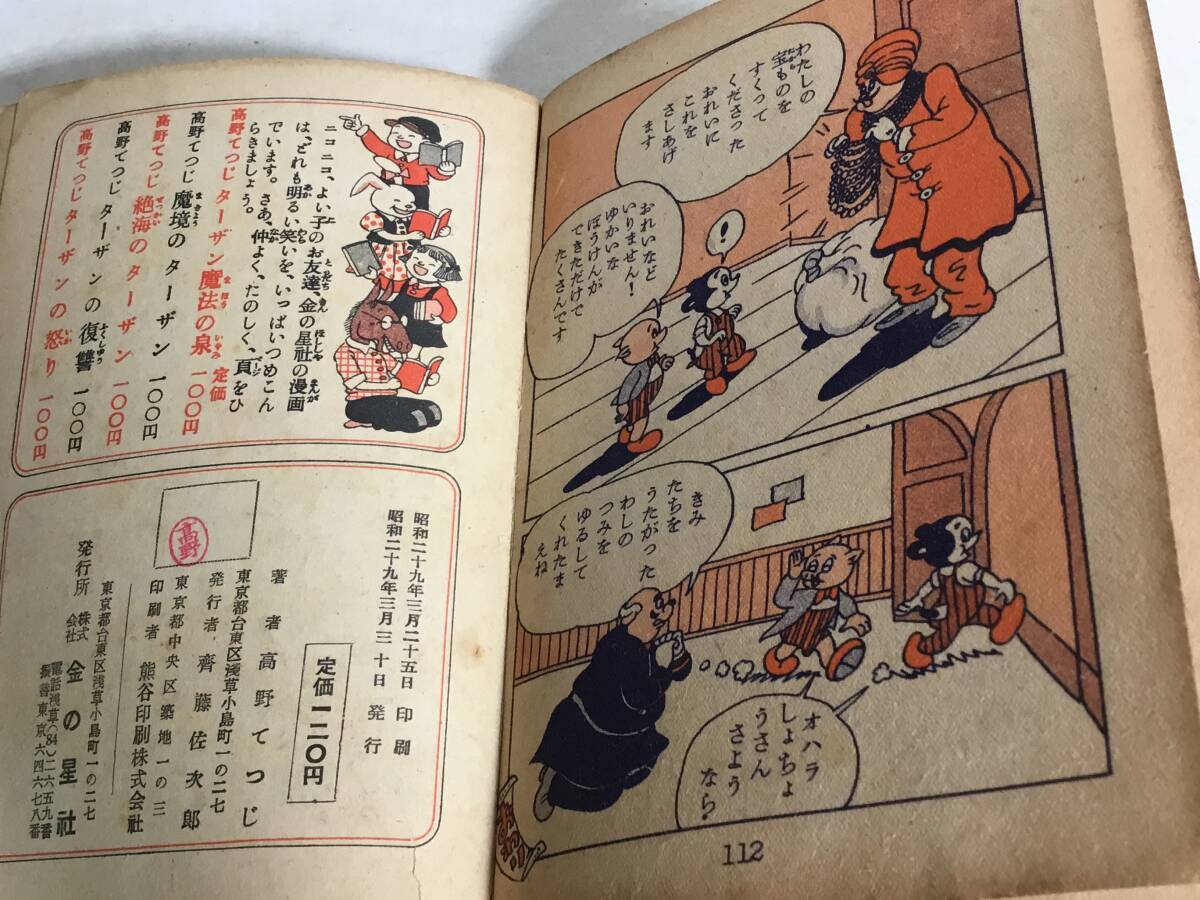 わたしの
宝ものを
たから
すくって
くださった
おれいに
これを
さしあげ
ます
おれいなど
いりません!
ゆかいな
ぼうけんが
できただけで
たくさんです
!
きみ
たちを
うたがった
わしの
つみを
ゆるして
くれたま
えね
オハラ
しょちょ
うさん
さよう
なら!
112
ニコニコ、よい子のお友達、金の星社の漫画
は、どれも明るい笑いを、いっぱいつめこん
でいます。さあ、仲よく、たのしく、頁をひ
らきましょう。
高野てつじ ターザン魔法の泉 定価一〇〇円
高野てつじ 魔境のターザン 一〇〇円
高野てつじ 絶海のターザン 一〇〇円
高野てつじ ターザンの復讐 一〇〇円
高野てつじ ターザンの怒り 一〇〇円
昭和二十九年三月二十五日 印刷
昭和二十九年三月三十日 発行
定価一二〇円
著者 高野てつじ
東京都台東区浅草小島町一の二七
発行者 齊藤佐次郎
東京都中央区築地一の三
印刷者 熊谷印刷株式会社
高野
東京都台東区浅草小島町一の二七
発行所 株式会社 金の星社
電話浅草(84)二六五九番
振替東京六四六七八番